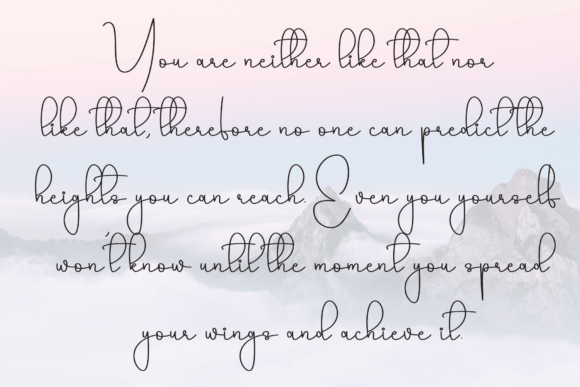 You are neither like that nor
like that, therefore no one can predict the
heights you can reach. Even you yourself
won't know until the moment you spread
your wings and achieve it.